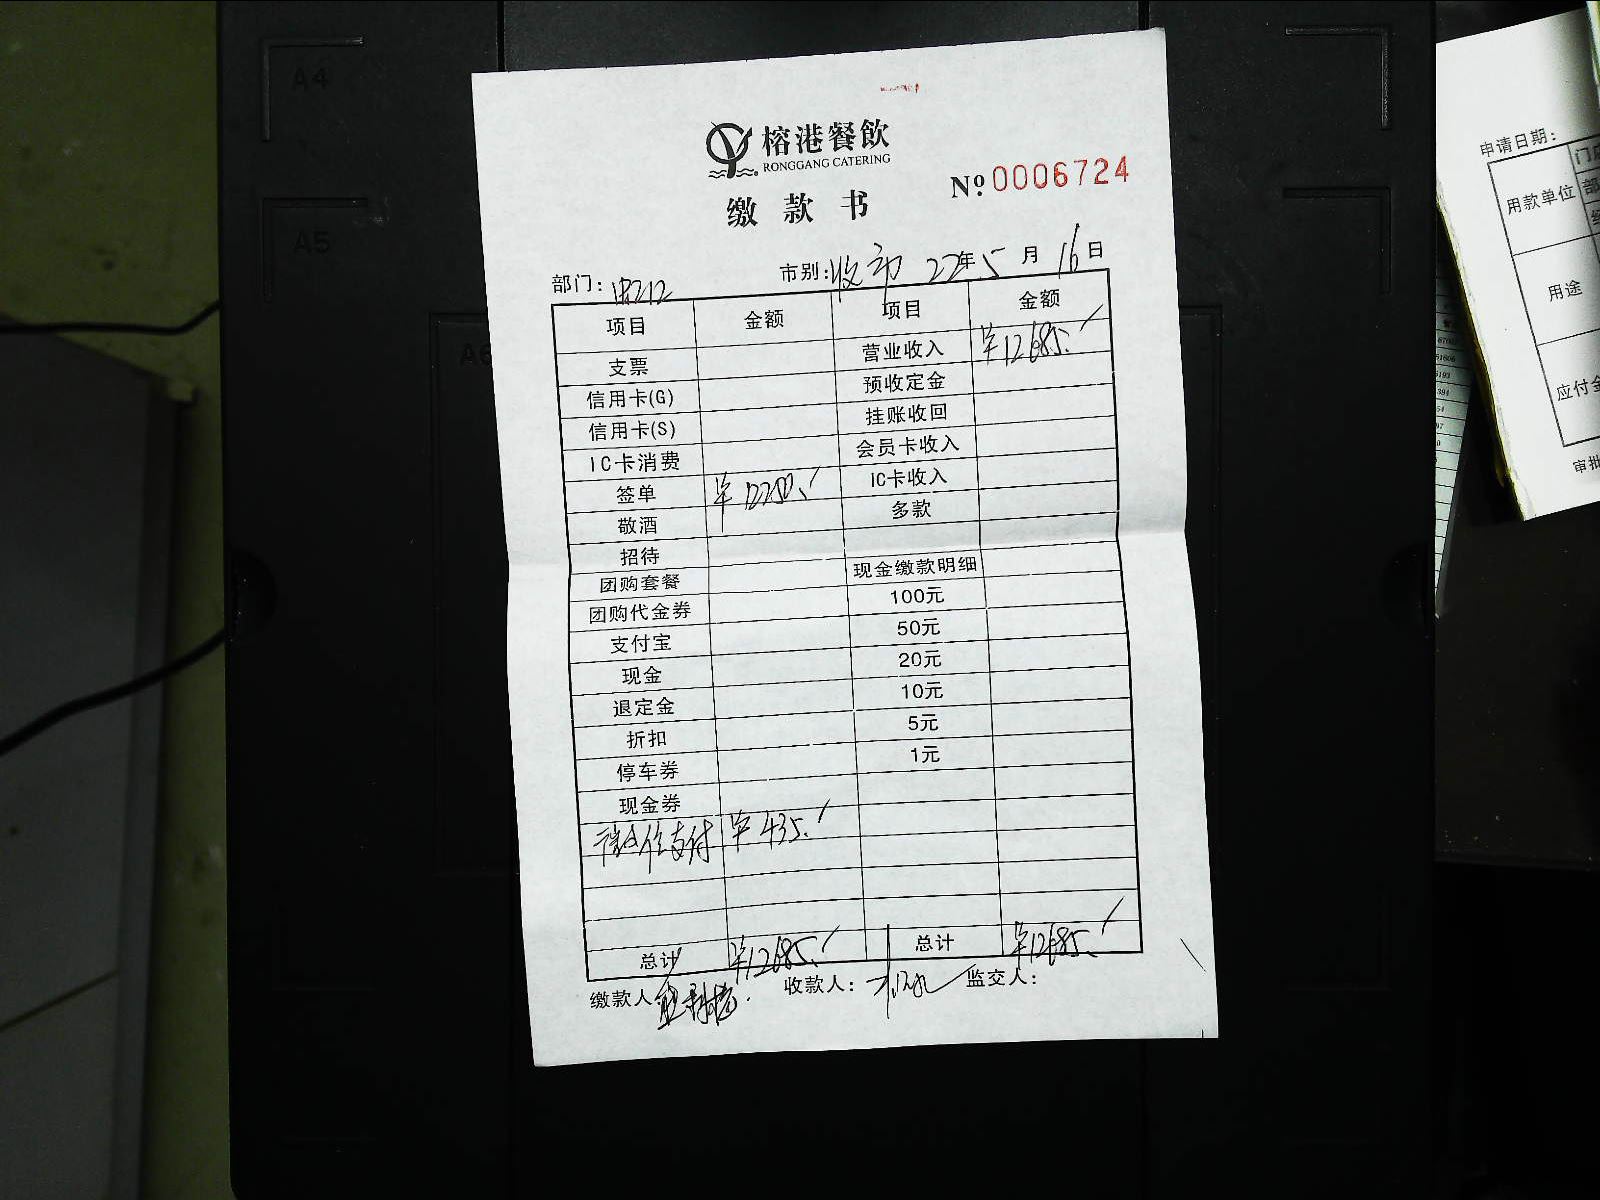 榕港餐飲
RONGGANG CATERING
缴款书
No 0006724
市别:收市 22年5月16日
部门:
项目 金额 项目 金额
支票 营业收入 ¥12685.
信用卡(G) 预收定金
信用卡(S) 挂账收回
IC卡消费 会员卡收入
签单 ¥12250. IC卡收入
敬酒 多款
招待
团购套餐 现金缴款明细
团购代金券 100元
支付宝 50元
现金 20元
退定金 10元
折扣 5元
停车券 1元
现金券
微信支付 ¥435.
总计 ¥12685. 总计 ¥12685.
缴款人: 收款人: 监交人:
A4
A5
A6
申请日期:
用款单位
用途
应付金
审批